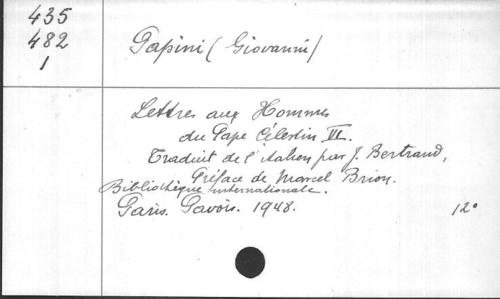 435
482
1
Papini (Giovanni)
Lettres aux Hommes
du Pape Célestin VI.
Traduit de l'italien par J. Bertrand,
Préface de Marcel Brion.
Bibliothèque internationale.
Paris. Pavois. 1948. 12°